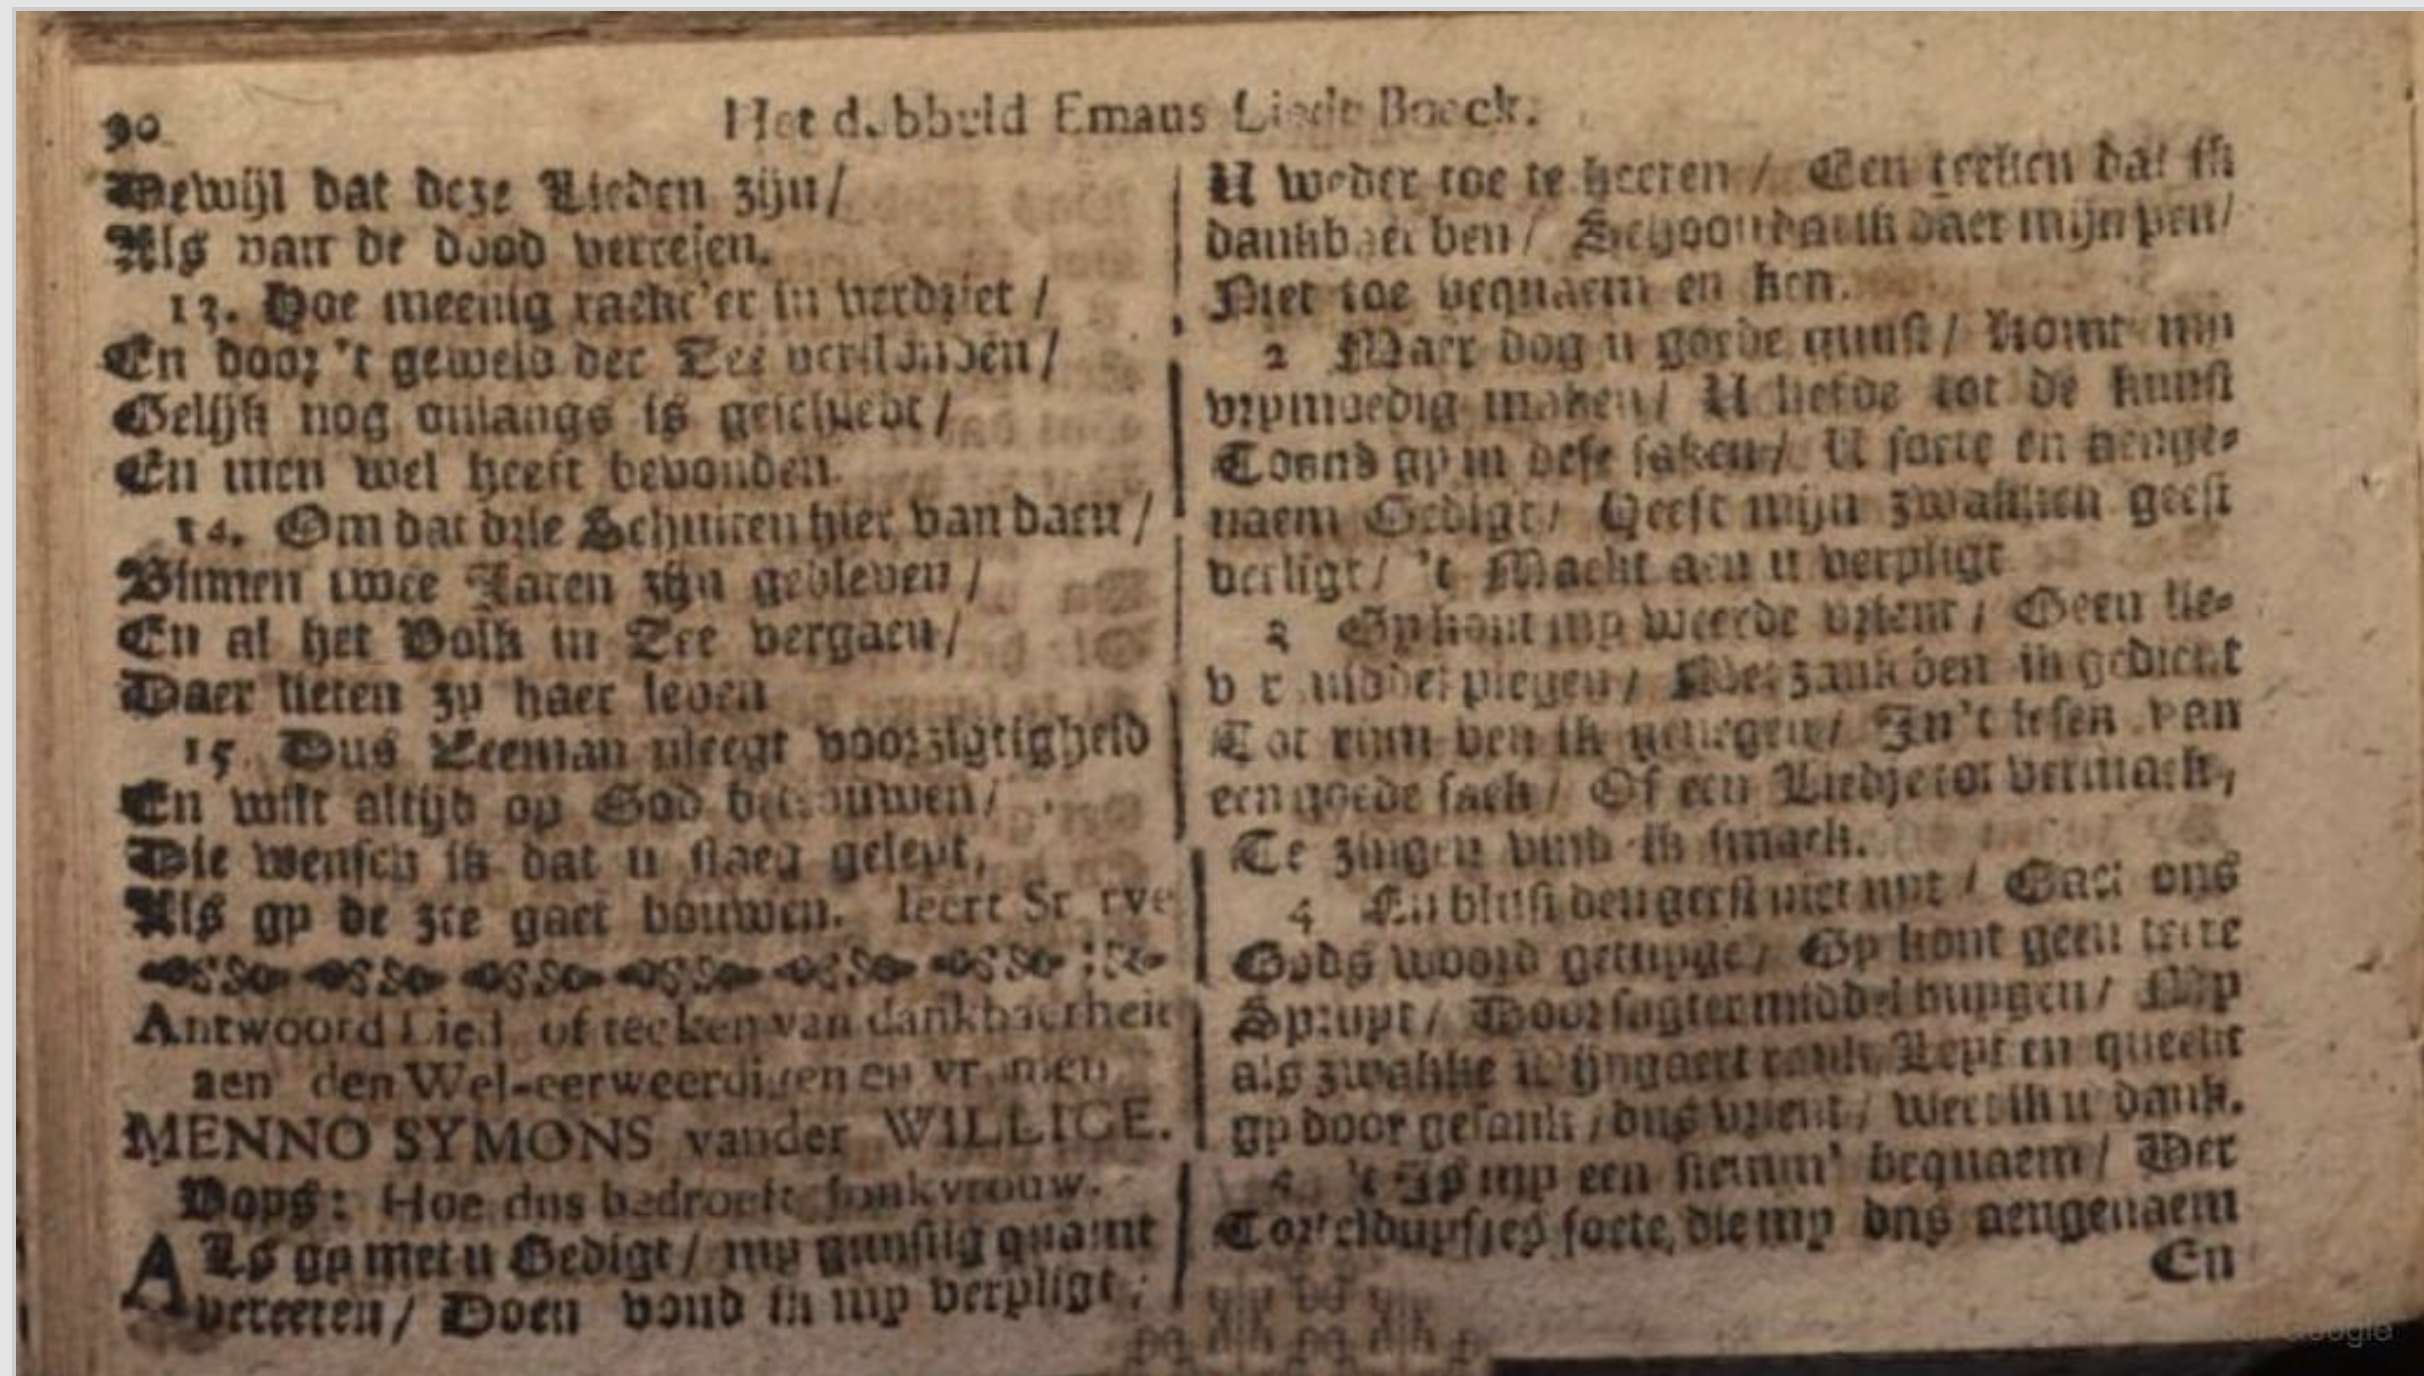 90
Het dubbeld Emaus Liedt Boeck.
Dewijl dat deze Lieden zijn /
Als van de dood verresen.
13. Hoe meenig raekt'er in verdriet /
En door 't geweld der Zee verslonden /
Gelijk nog onlangs is geschiedt /
En men wel heeft bevonden.
14. Om dat drie Schuiten hier van daen /
Binnen twee Jaren zijn gebleven /
En al het Volk in Zee vergaen /
Daer lieten zy haer leven
15 Dus Zeeman pleegt voorzigtigheid
En wilt altijd op God betrouwen /
Die wensch is dat u staeg geleyt,
Als gy de zee gaet bouwen. leert St rve
Antwoord Lied of teeken van dankbaerheit
aen den Wel-eerweerdigen en vromen
MENNO SYMONS vander WILLIGE.
Voys: Hoe dus bedroeft Jonkvrouw.
ALs gy met u Gedigt / my gunstig quamt
vereeren / Doen vond ik my verpligt;
U weder toe te keeren / Een teeken dat ik
dankbaer ben / Schoon daer mijn pen /
Niet toe bequaem en ken.
2 Maer dog u goede gunst / Komt my
vrymoedig maken / U liefde tot de kunst
Toond gy in dese saken / U soete en aenge-
naem Gedigt / Heeft mijn zwakken geest
verligt / 't Maekt aen u verpligt
3 Gy kont my weerde vrient / Geen lie-
v r middel plegen / Met zank ben ik gedient
Tot rijm ben ik genegen / In't lesen van
een goede saek / Of een Liedje tot vermaek,
Te zingen vind ik smaek.
4 En blust den geest niet uyt / Gaet ons
Gods woord getuyge / Gy kont geen teere
Spruyt / Door sagter middel buygen / My
als zwakke wijngaert rank Leyt en queekt
gy door gesank / dus vrient / weet ik u dank.
't Is my een stemm' bequaem / Der
Tortelduyfjes soete, die my dus aengenaem
En